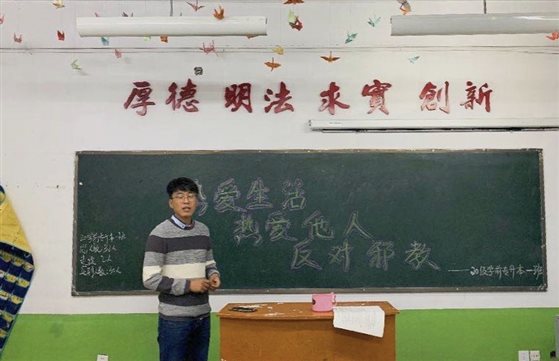 厚德 明法 求實 創新
热爱生活
热爱他人
反对邪教
——20级学前专升本一班